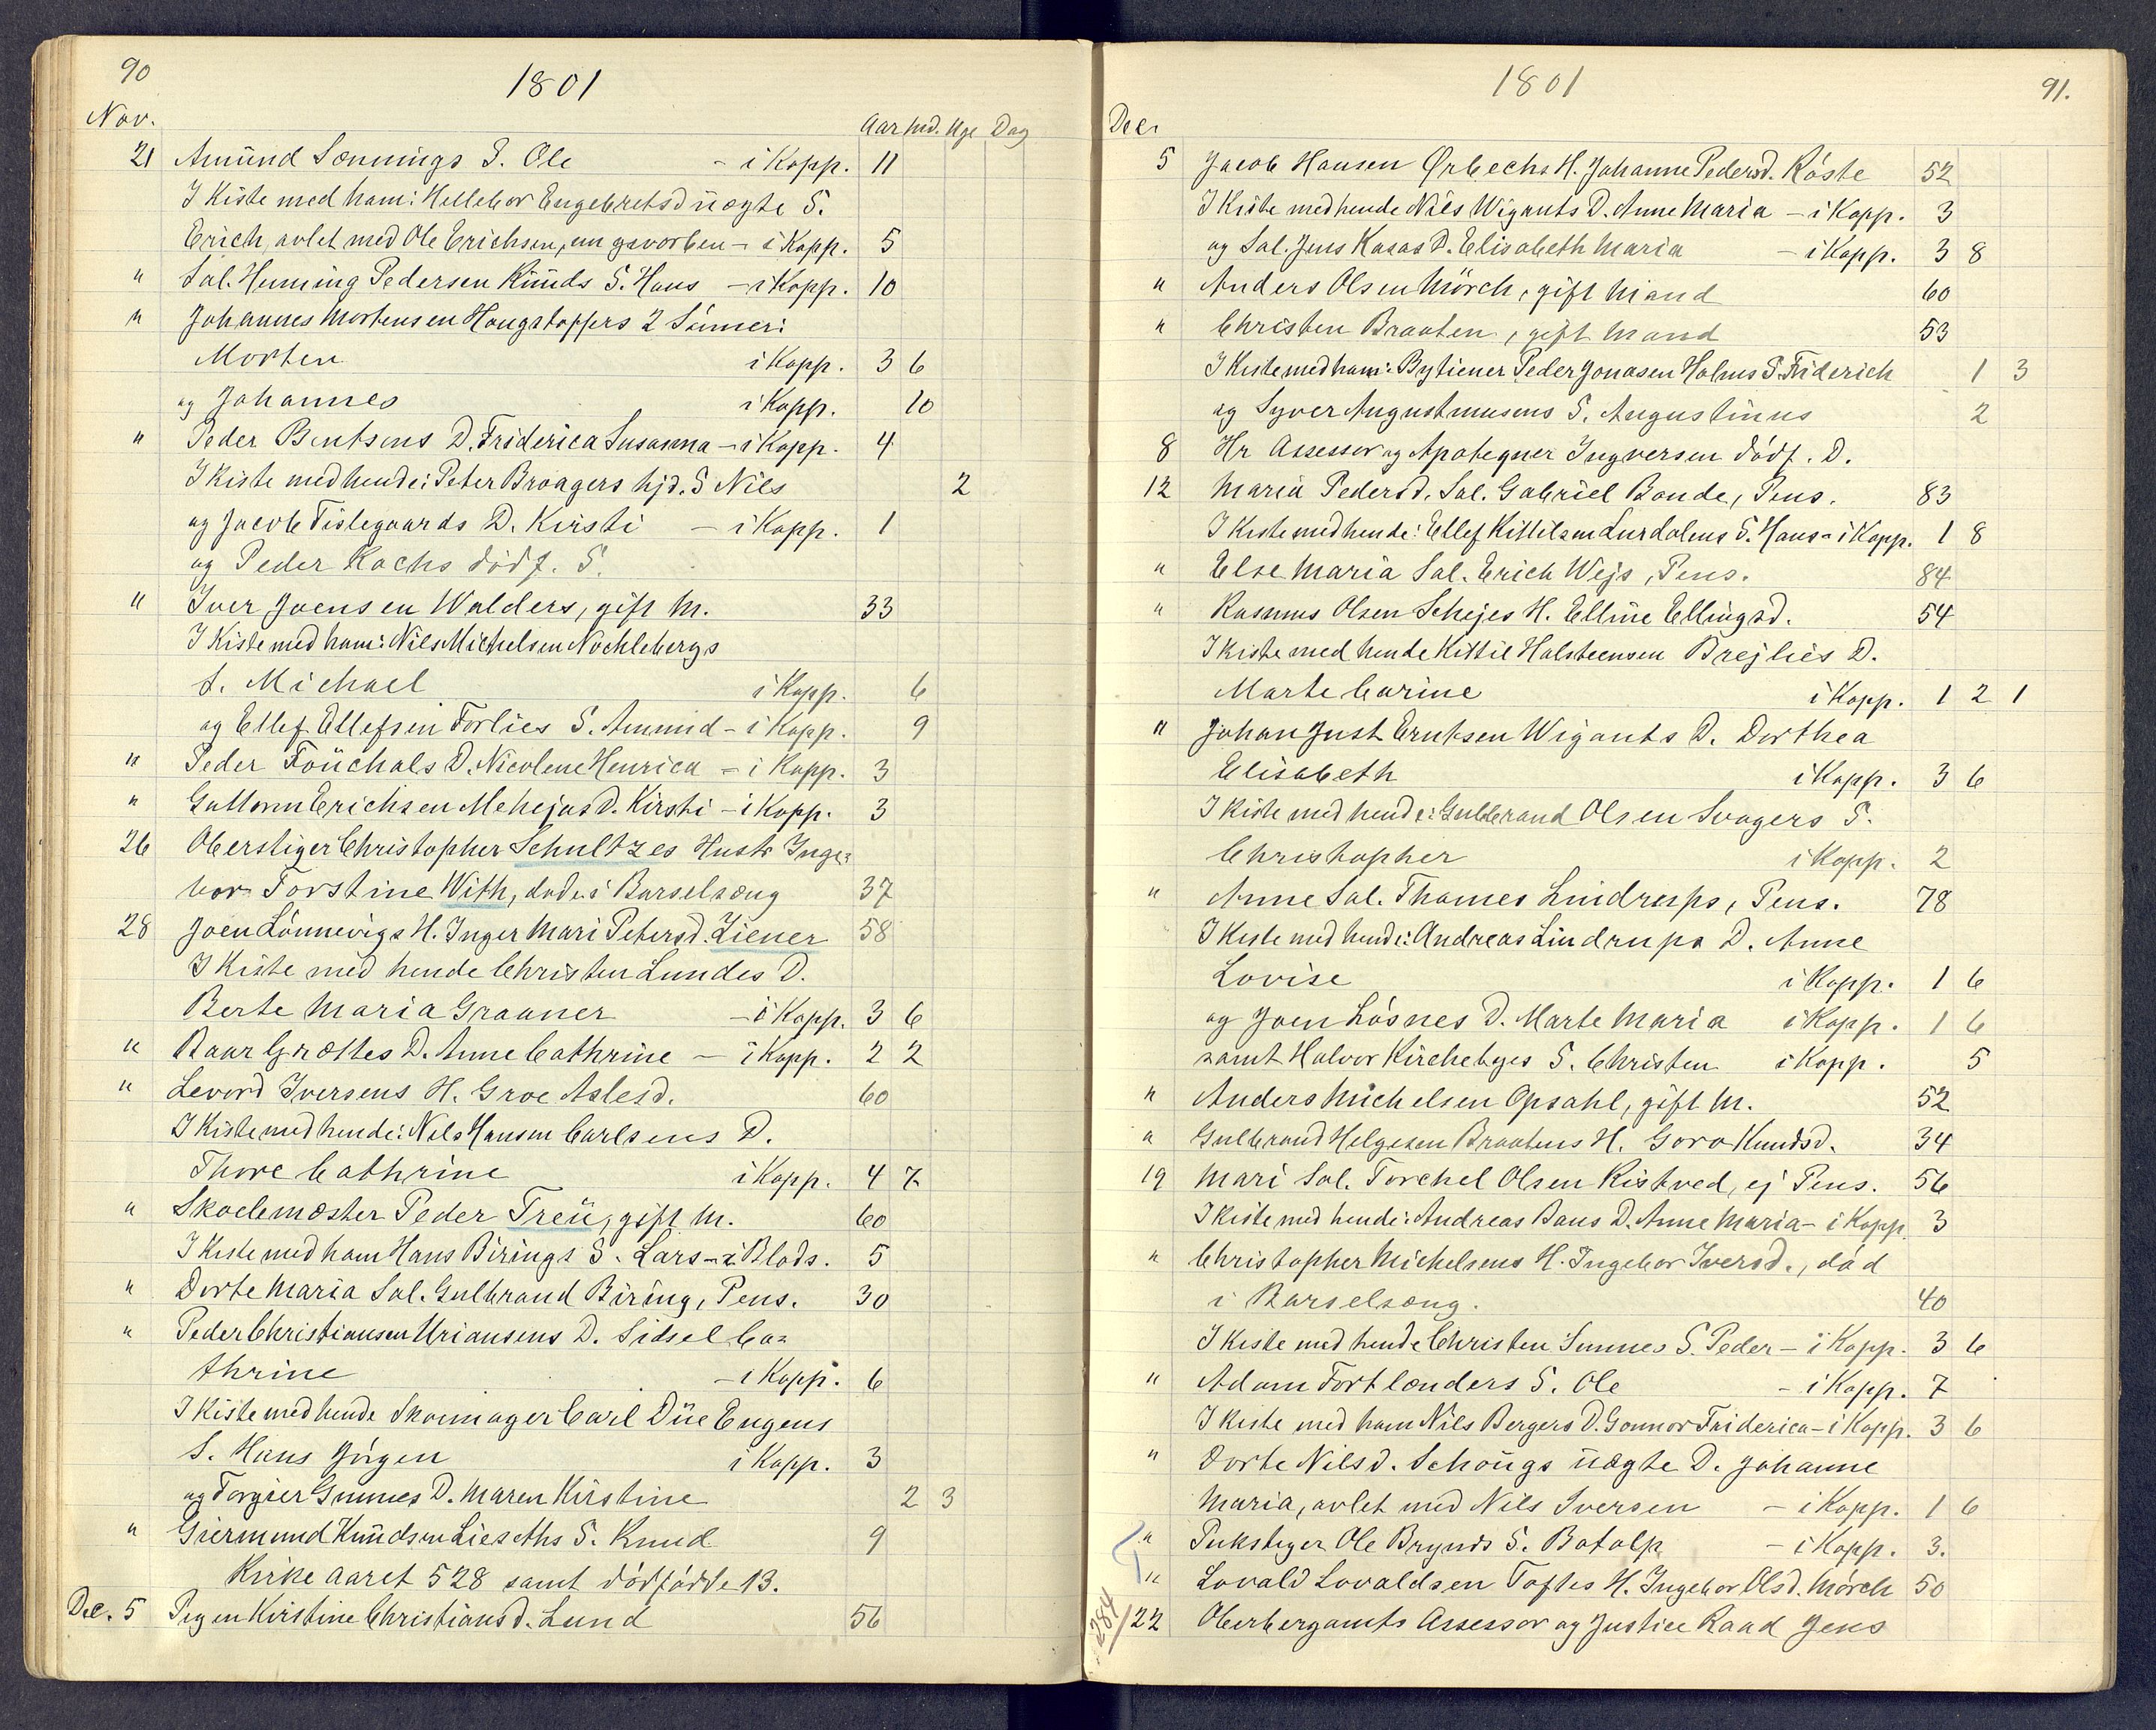 90
1801
Nov. Aar Md. Uge Dag
21 Amünd Sønnings S. Ole - i Kopp. 11
I Kiste med ham: Hellebor Engebretsd uægte S.
Erich, avlet med Ole Erichsen, en gevorben - i Kopp. 5
" Sal. Henning Pedersen Knuds S. Hans - i Kopp. 10
" Johannes Mortensen Haugstoppers 2 Sønner:
Morten i Kopp. 3 6
og Johannes i Kopp. 10
" Peder Bentsens D. Friderica Susanna - i Kopp. 4
I Kiste med hende: Peter Braagers hjd. S Nils 2
og Jacob Tislegaards D. Kirsti - i Kopp. 1
og Peder Kochs dödf. S.
" Iver Joensen Walders, gift M. 33
I Kiste med ham: Nils Michelsen Nochlebergs
S. Michael i Kopp. 6
og Ellef Ellefsen Forlies S. Amund - i Kopp. 9
" Peder Fouchals D. Nicolene Henrica - i Kopp. 3
" Guttorm Erichsen Mehejas D. Kirsti - i Kopp. 3
26 Oberstiger Christopher Schultzes Hustr Inge=
bor Torstine With, døde i Barselsæng 37
28 Joen Lönnevigs H. Inger Mari Petersd. Ziener 58
I Kiste med hende Christen Lundes D.
Berte Maria Graaner - i Kopp. 3 6
" Baar Grættes D. Anne Cathrine - i Kopp. 2 2
" Levord Iversens H. Groe Aslesd. 60
I Kiste med hende: Nils Hansen Carlsens D.
Thore Cathrine i Kopp. 4 7
" Skolemæster Peder Treü, gift M. 60
I Kiste med ham Hans Birings S. Lars - i Blods. 5
" Dorte Maria Sal. Gulbrand Biring, Pens. 30
" Peder Christiansen Uriansens D. Sidsel Ca=
thrine - i Kopp. 6
I Kiste med hende Skomager Carl Düe Engens
S. Hans Jörgen i Kopp. 3
og Torgier Gunnes D. Maren Kirstine 2 3
" Giermund Knudsen Lieseths S. Knud 9
Kirke aaret 528 samt dödfödte 13.
Dec. 5 Pigen Kirstine Christiansd. Lund 56
1801
91.
Dec.
5 Jacob Hansen Ørbechs H. Johanne Pedersd. Röste 52
I Kiste med hende Nils Wigants D. Anne Maria - i Kopp. 3
og Sal. Jens Kasas D. Elisabeth Maria - i Kopp. 3 8
" Anders Olsen Mörch, gift Mand 60
" Christen Braaten, gift Mand 53
I Kiste med ham: Bytiener Peder Jonasen Holms S. Friderich 1 3
og Syver Augustinusens S. Augustinus 2
8 Hr Assessor og Apoteqner Ingversen dödf. D.
12 Maria Pedersd. Sal. Gabriel Bonde, Pens. 83
I Kiste med hende: Ellef Kittilsen Lurdalens S. Hans - i Kopp. 1 8
" Else Maria Sal. Erich Wejs, Pens. 84
" Rasmus Olsen Schejes H. Elline Ellingsd. 54
I Kiste med hende Kittil Halsteensen Brejlies D.
Marte Carine i Kopp. 1 2 1
" Johan Just Erntsen Wigants D. Dorthea
Elisabeth i Kopp. 3 6
I Kiste med hende: Gulbrand Olsen Svagers S.
Christopher i Kopp. 2
" Anne Sal. Thomes Lindrups, Pens. 78
I Kiste med hende: Andreas Lindrups D. Anne
Lovise i Kopp. 1 6
og Joen Lösnes D. Marte Maria i Kopp. 1 6
samt Halvor Kirchebyes S. Christen i Kopp. 5
" Anders Michelsen Opsahl, gift M. 52
" Gulbrand Helgesen Braatens H. Goro Knudsd. 34
19 Mari Sal. Torchel Olsen Ristved, ej Pens. 56
I Kiste med hende: Andreas Baus D. Anne Maria - i Kopp. 3
" Christopher Michelsens H. Ingebor Iversd., död
i Barselsæng. 40
I Kiste med hende Christen Sunnes S. Peder - i Kopp. 3 6
" Adam Fortlænders S. Ole - i Kopp. 7
I Kiste med ham Nils Bergers D. Gonnor Friderica - i Kopp. 3 6
" Dorte Nilsd. Schougs uægte D. Johanne
Maria, avlet med Nils Iversen - i Kopp. 1 6
" Pukstiger Ole Brynds S. Botolp - i Kopp. 3.
" Lovald Lovaldsen Toftes H. Ingebor Olsd. Mörch 50
284/22 Oberbergamts Assessor og Justice Raad Jens